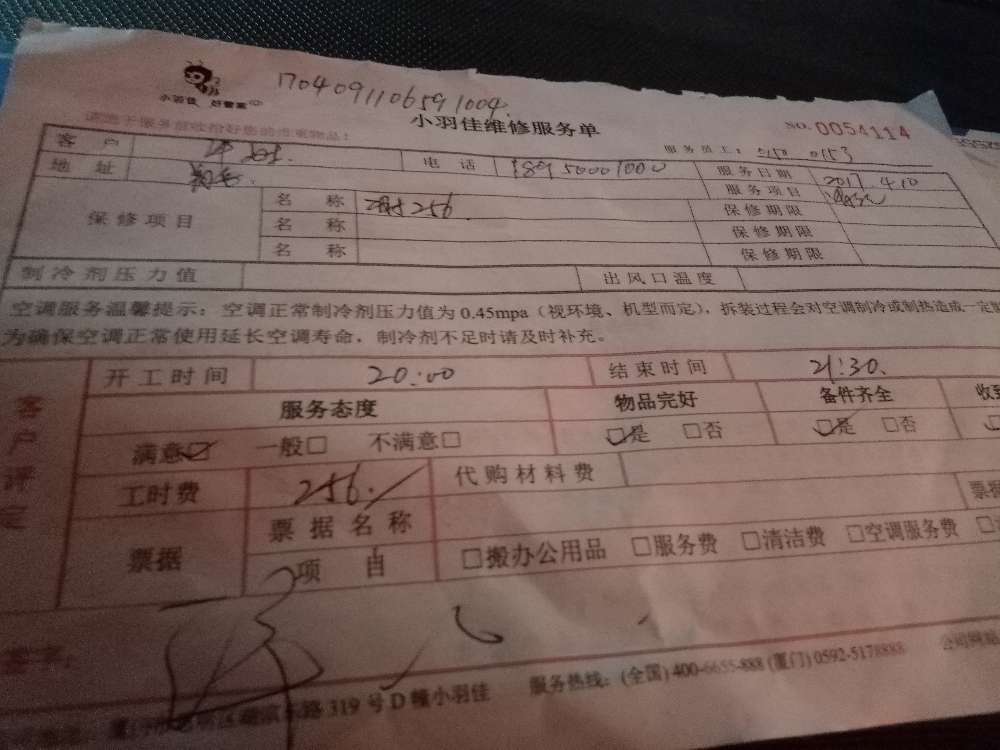 小羽佳 好管家
1704091106591004
小羽佳维修服务单
NO. 0054114
请您于服务前收拾好您的贵重物品!
服务员工: 0153
客户 电话 18950001000 服务日期 2017.4.10
地址 服务项目
保修项目 名称 256 保修期限
名称 保修期限
名称 保修期限
制冷剂压力值 出风口温度
空调服务温馨提示:空调正常制冷剂压力值为0.45mpa(视环境、机型而定),拆装过程会对空调制冷或制热造成一定
为确保空调正常使用延长空调寿命,制冷剂不足时请及时补充。
客户评定
开工时间 20:00 结束时间 21:30.
服务态度 物品完好 备件齐全 收到
满意☑ 一般□ 不满意□ ☑是 □否 ☑是 □否
工时费 256. 代购材料费
票据 票据名称 票据
项目 □搬办公用品 □服务费 □清洁费 □空调服务费 □
路319号D幢小羽佳 服务热线:(全国)400-6655-888 (厦门)0592-5178888 公司网站